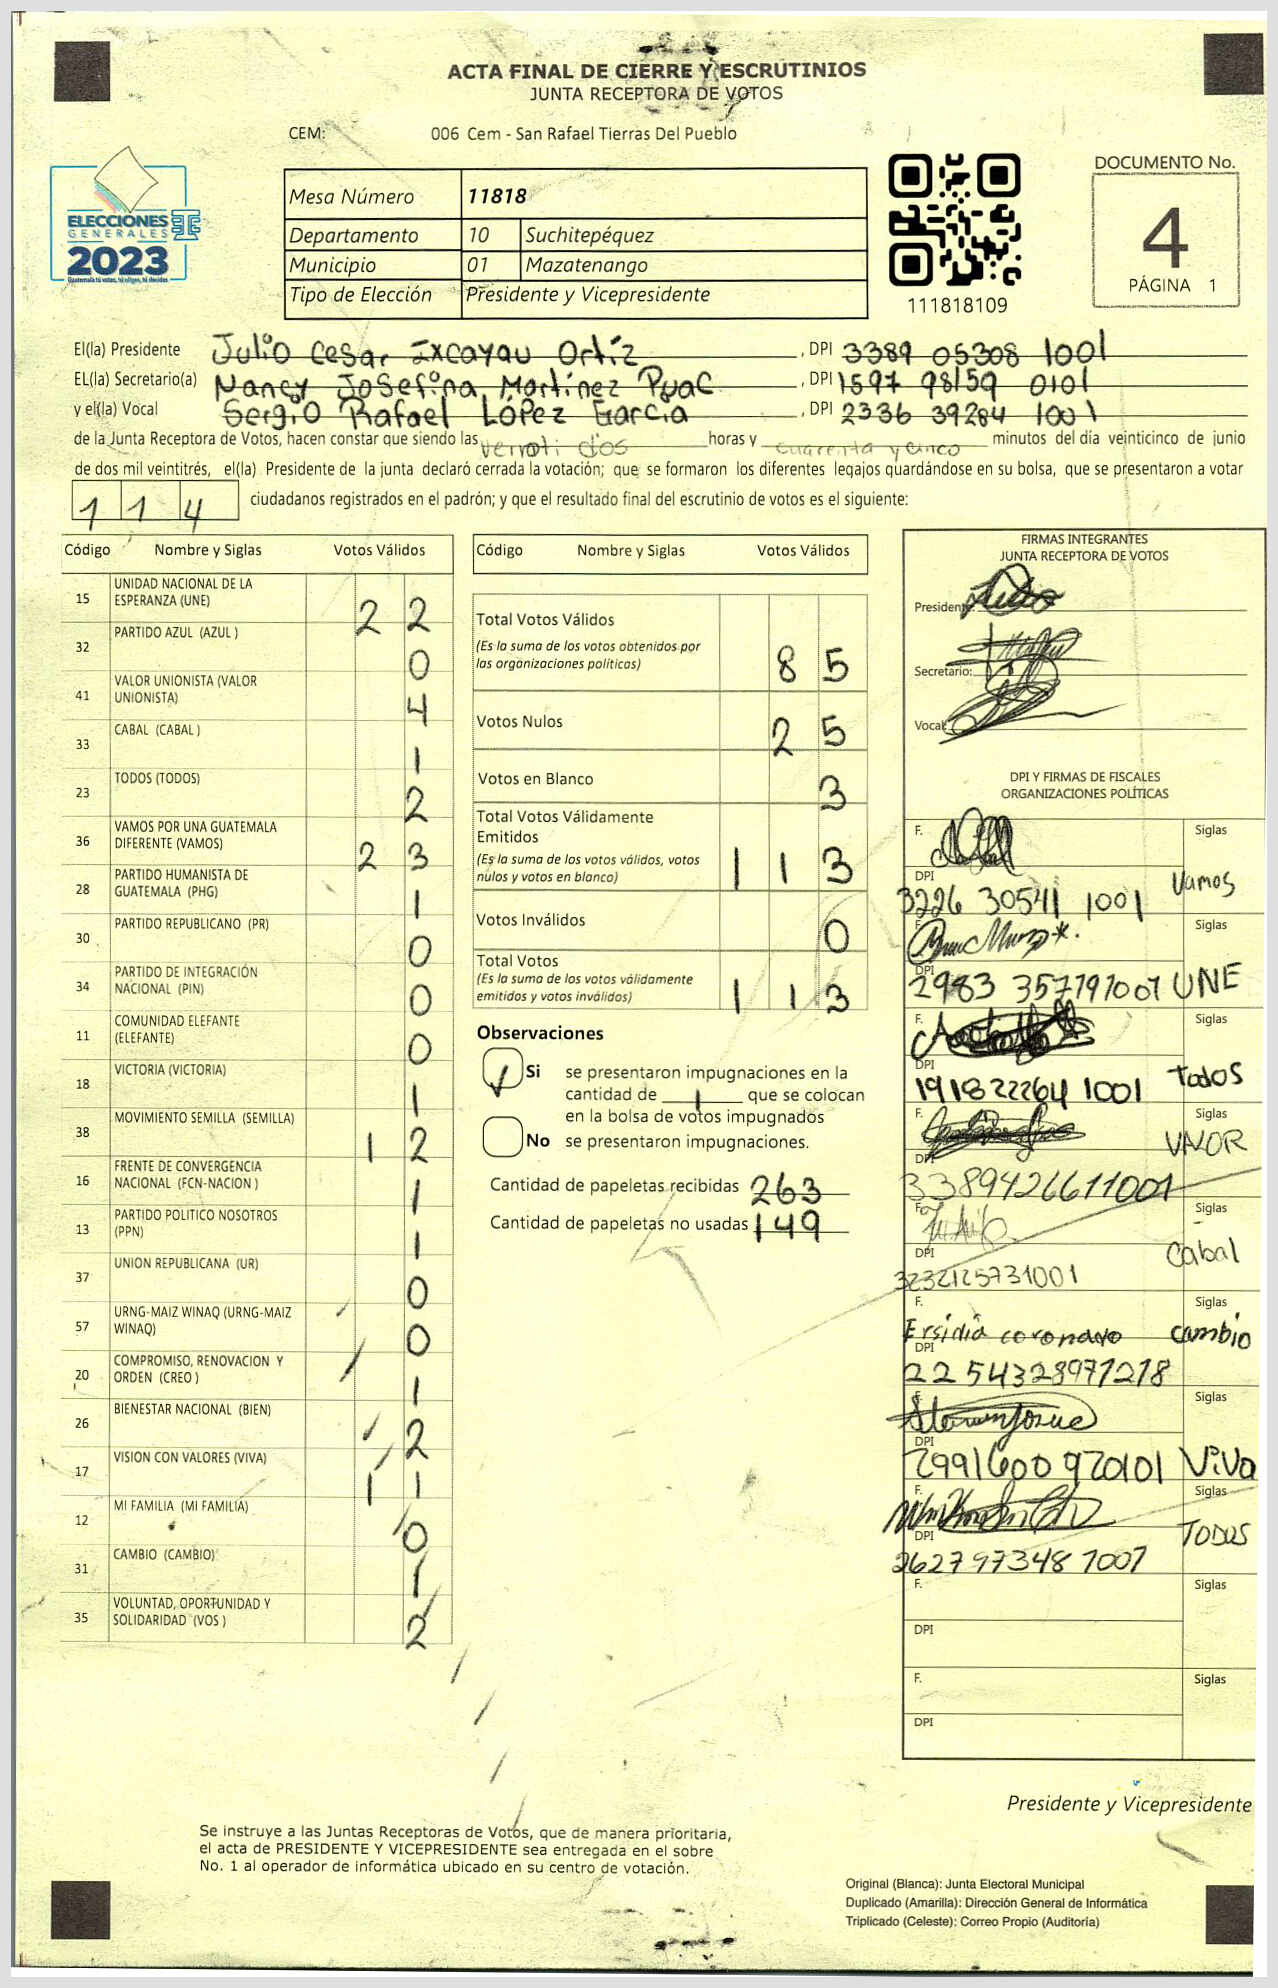 ACTA FINAL DE CIERRE Y ESCRUTINIOS
JUNTA RECEPTORA DE VOTOS
CEM: 006 Cem - San Rafael Tierras Del Pueblo
ELECCIONES
GENERALES
2023
Guatemala tú votas, tú eliges, tú decides
Mesa Número 11818
Departamento 10 Suchitepéquez
Municipio 01 Mazatenango
Tipo de Elección Presidente y Vicepresidente
111818109
DOCUMENTO No.
4
PÁGINA 1
El(la) Presidente Julio Cesar Ixcayau Ortíz, DPI 3389 05308 1001
EL(la) Secretario(a) Nancy Josefina Martínez Puac, DPI 1597 98159 0101
y el(la) Vocal Sergio Rafael López Garcia, DPI 2336 39284 1001
de la Junta Receptora de Votos, hacen constar que siendo las veinti dos horas y cuarenta y cinco minutos del día veinticinco de junio
de dos mil veintitrés, el(la) Presidente de la junta declaró cerrada la votación; que se formaron los diferentes legajos quardándose en su bolsa, que se presentaron a votar
114 ciudadanos registrados en el padrón; y que el resultado final del escrutinio de votos es el siguiente:
Código Nombre y Siglas Votos Válidos
15 UNIDAD NACIONAL DE LA
ESPERANZA (UNE) 22
32 PARTIDO AZUL (AZUL ) 0
41 VALOR UNIONISTA (VALOR
UNIONISTA) 4
33 CABAL (CABAL ) 1
23 TODOS (TODOS) 2
36 VAMOS POR UNA GUATEMALA
DIFERENTE (VAMOS) 23
28 PARTIDO HUMANISTA DE
GUATEMALA (PHG) 1
30 PARTIDO REPUBLICANO (PR) 0
34 PARTIDO DE INTEGRACIÓN
NACIONAL (PIN) 0
11 COMUNIDAD ELEFANTE
(ELEFANTE) 0
18 VICTORIA (VICTORIA) 1
38 MOVIMIENTO SEMILLA (SEMILLA) 12
16 FRENTE DE CONVERGENCIA
NACIONAL (FCN-NACION ) 1
13 PARTIDO POLITICO NOSOTROS
(PPN) 1
37 UNION REPUBLICANA (UR) 0
57 URNG-MAIZ WINAQ (URNG-MAIZ
WINAQ) 0
20 COMPROMISO, RENOVACION Y
ORDEN (CREO ) 1
26 BIENESTAR NACIONAL (BIEN) 2
17 VISION CON VALORES (VIVA) 11
12 MI FAMILIA (MI FAMILIA) 0
31 CAMBIO (CAMBIO) 1
35 VOLUNTAD, OPORTUNIDAD Y
SOLIDARIDAD (VOS ) 2
Código Nombre y Siglas Votos Válidos
Total Votos Válidos
(Es la suma de los votos obtenidos por
las organizaciones políticas) 85
Votos Nulos 25
Votos en Blanco 3
Total Votos Válidamente
Emitidos
(Es la suma de los votos válidos, votos
nulos y votos en blanco) 113
Votos Inválidos 0
Total Votos
(Es la suma de los votos válidamente
emitidos y votos inválidos) 113
Observaciones
Si se presentaron impugnaciones en la
cantidad de 1 que se colocan
en la bolsa de votos impugnados
No se presentaron impugnaciones.
Cantidad de papeletas recibidas 263
Cantidad de papeletas no usadas 149
FIRMAS INTEGRANTES
JUNTA RECEPTORA DE VOTOS
Presidente:
Secretario:
Vocal:
DPI Y FIRMAS DE FISCALES
ORGANIZACIONES POLÍTICAS
F. Siglas
DPI Vamos
3226 30541 1001
F. Siglas
DPI
2983 35779 1001 UNE
F. Siglas
DPI Todos
1918 22264 1001
F. Siglas
DPI VALOR
3389426611001
F. Siglas
DPI Cabal
3232125731001
F. Siglas
Ersidia coronado cambio
DPI
2254328971218
F. Siglas
DPI
2991600920101 ViVa
F. Siglas
DPI TODOS
2627973481001
F. Siglas
DPI
F. Siglas
DPI
Presidente y Vicepresidente
Se instruye a las Juntas Receptoras de Votos, que de manera prioritaria,
el acta de PRESIDENTE Y VICEPRESIDENTE sea entregada en el sobre
No. 1 al operador de informática ubicado en su centro de votación.
Original (Blanca): Junta Electoral Municipal
Duplicado (Amarilla): Dirección General de Informática
Triplicado (Celeste): Correo Propio (Auditoría)